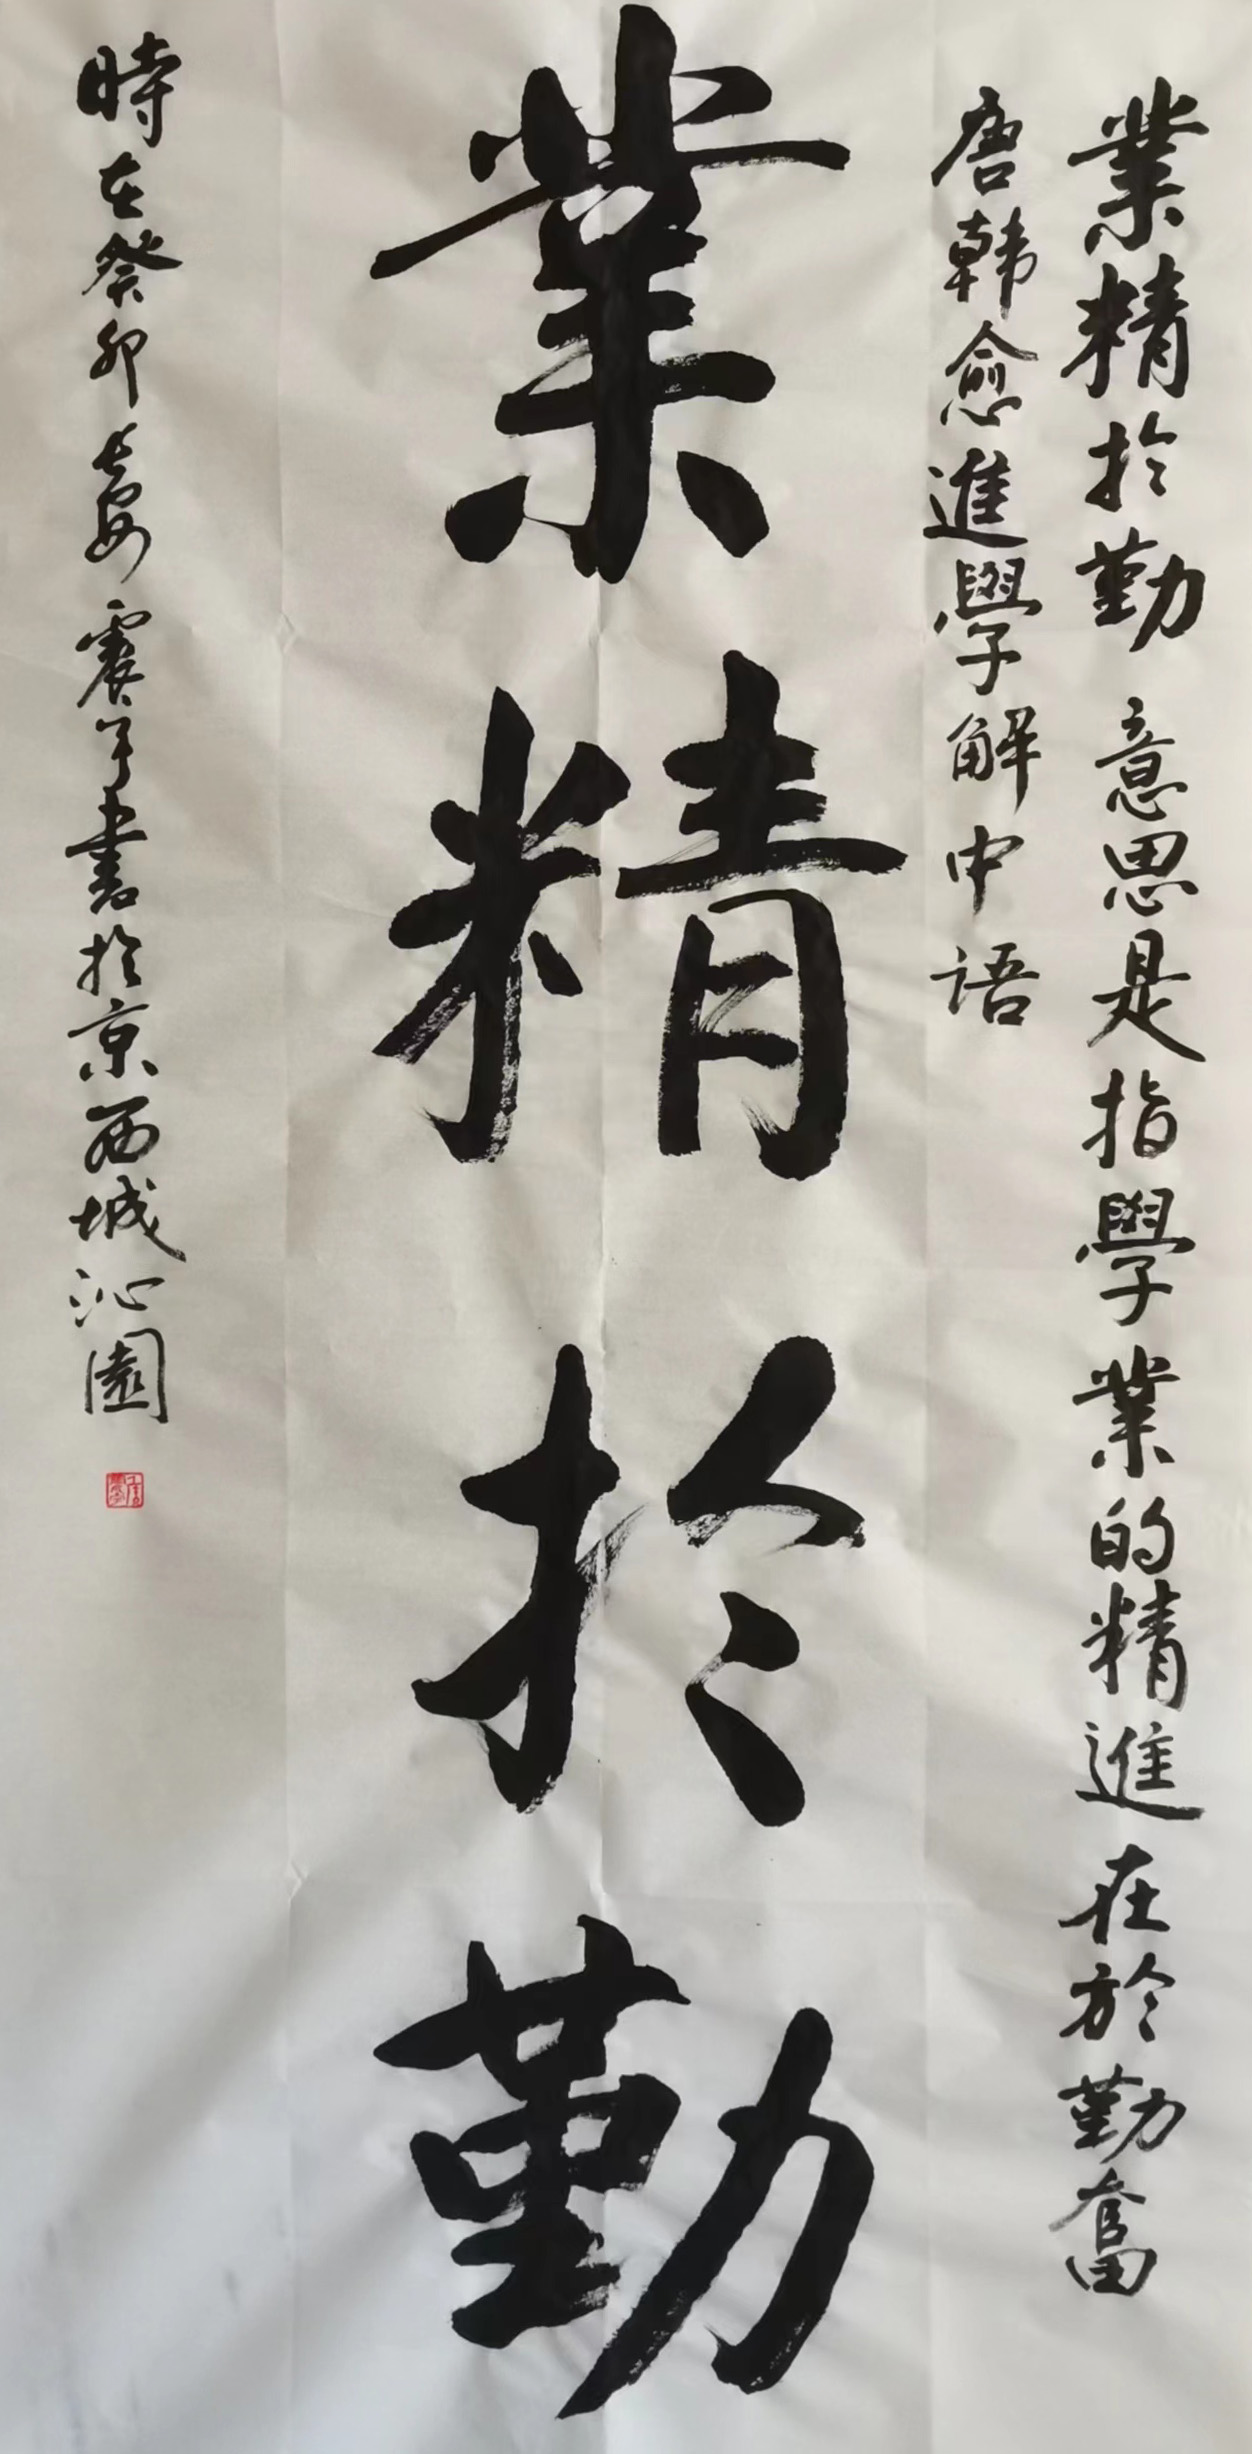 業精於勤 意思是指學業的精進在於勤奮
唐韩愈進學解中语
業精於勤
時在癸卯长安震宇書於京西城沁園